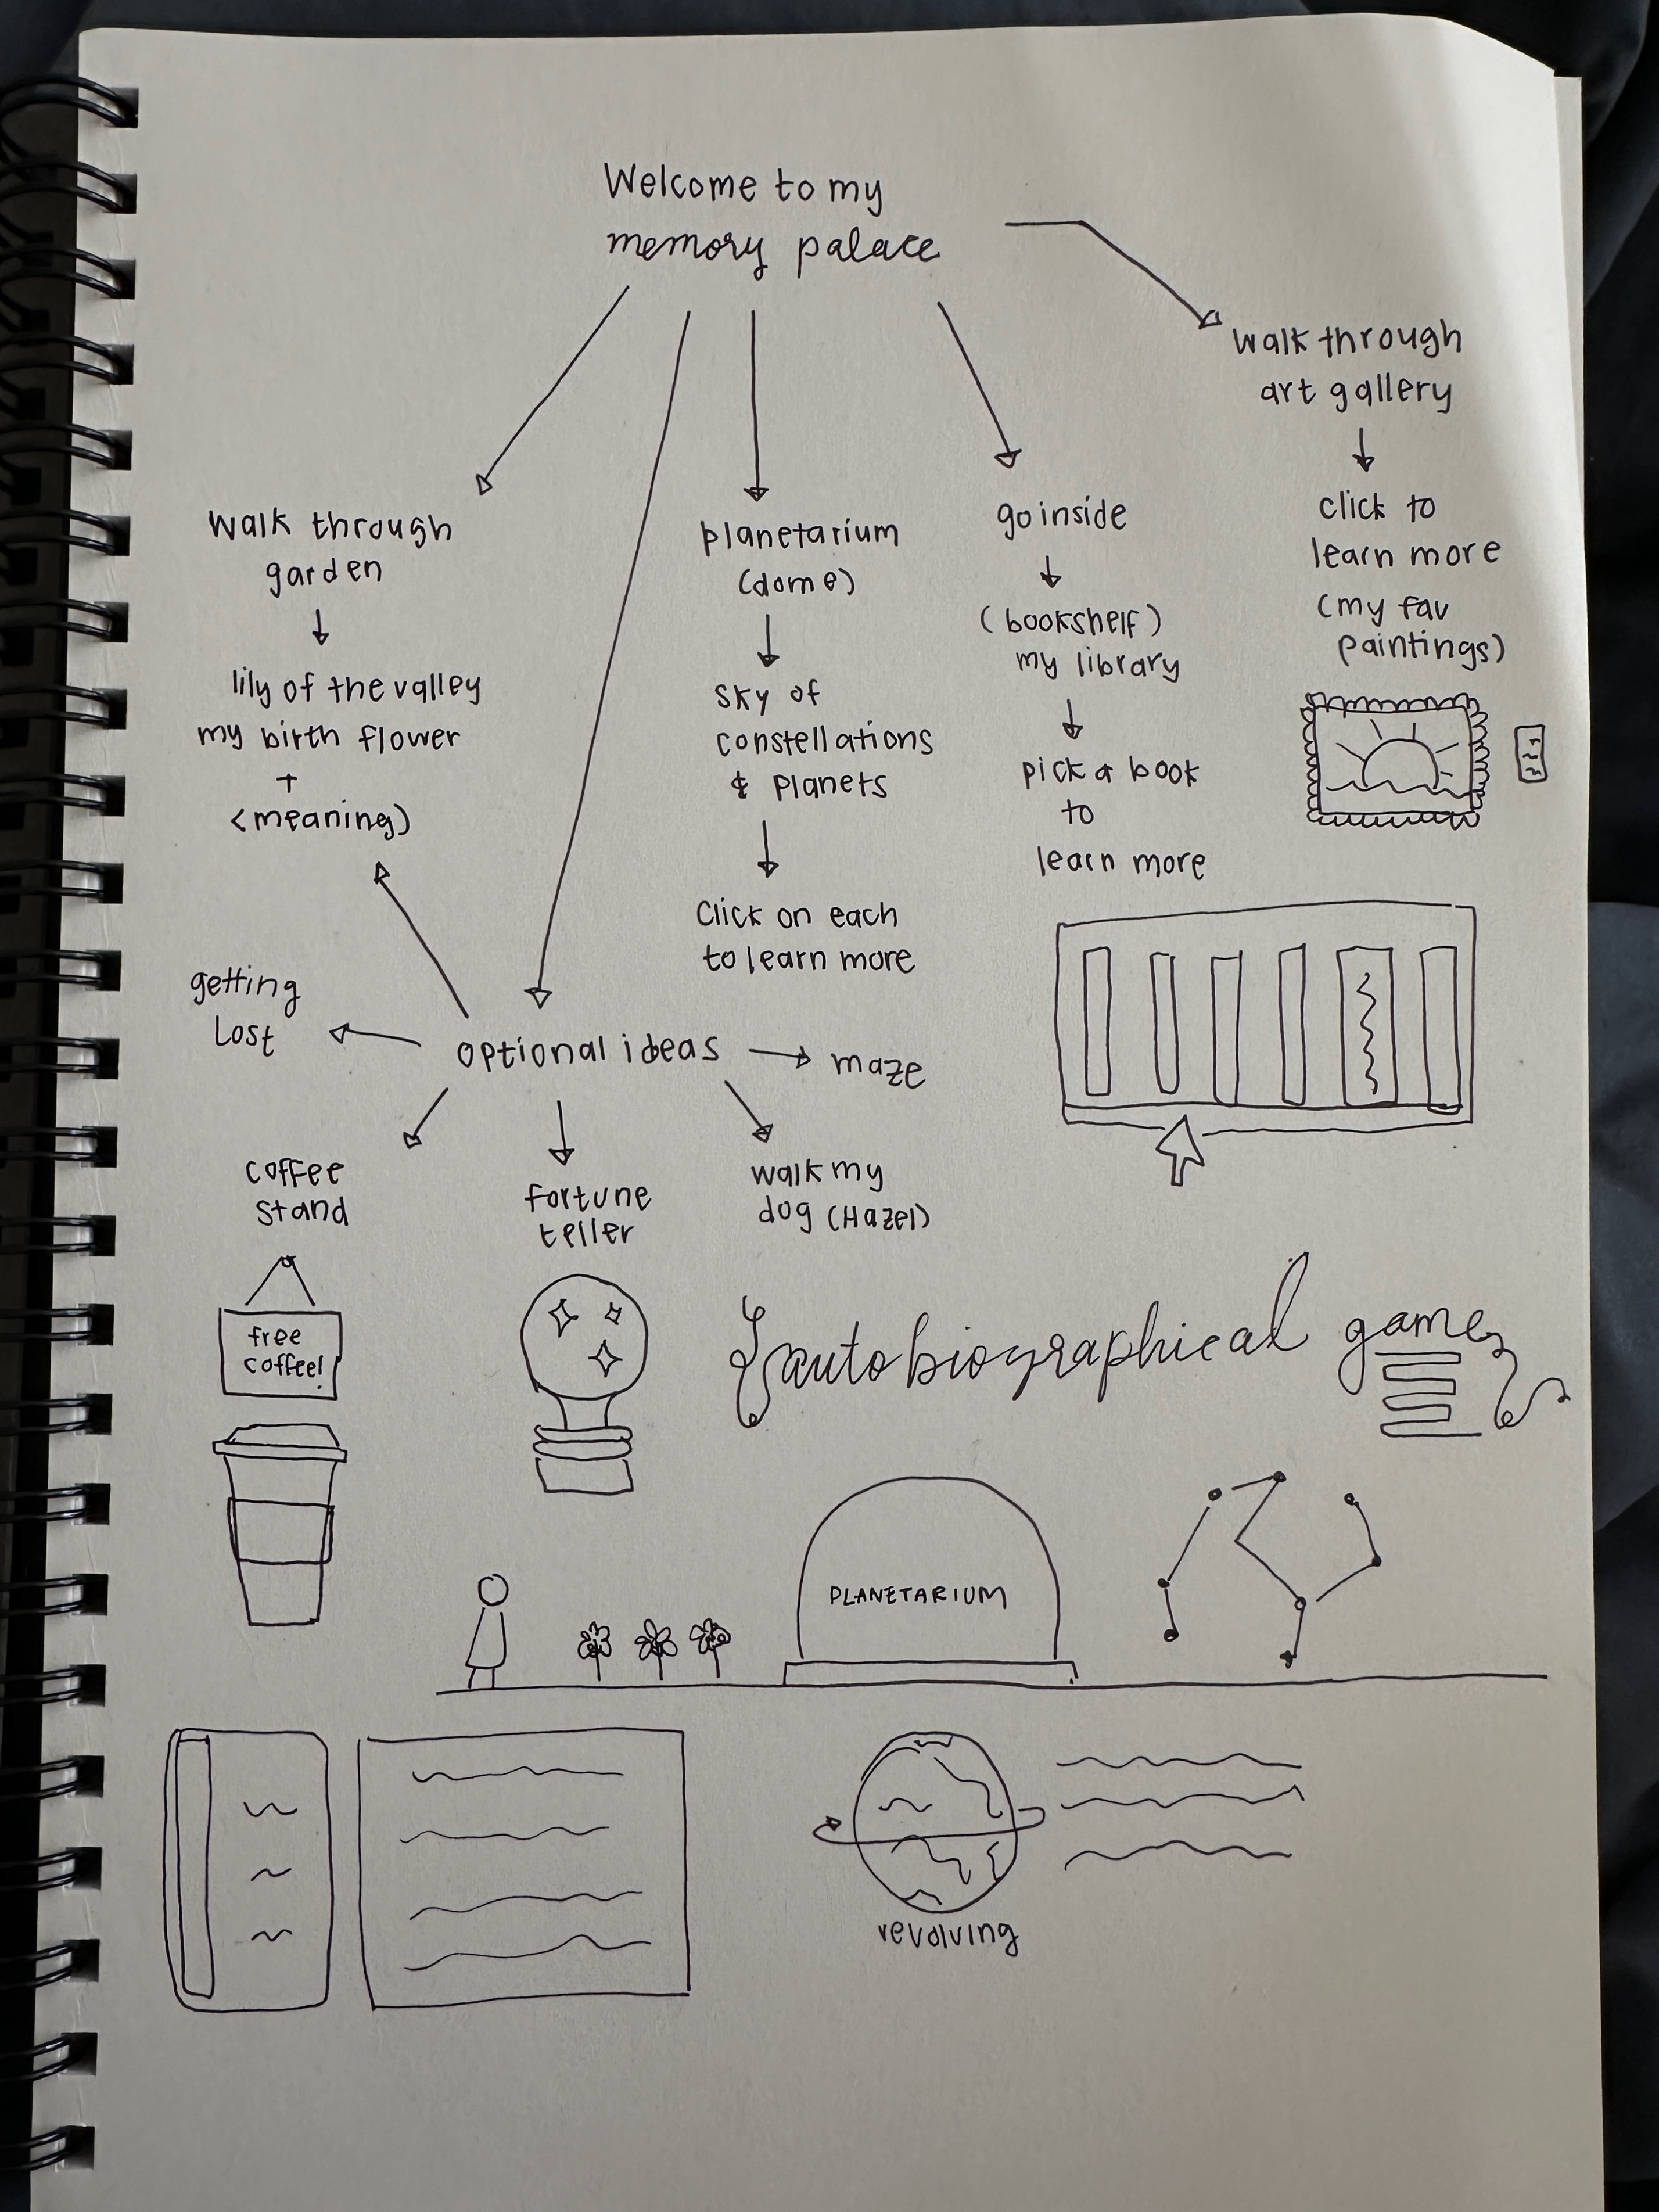 Welcome to my
memory palace
walk through
garden
lily of the valley
my birth flower
+
(meaning)
planetarium
(dome)
sky of
constellations
& planets
click on each
to learn more
go inside
(bookshelf)
my library
pick a book
to
learn more
walk through
art gallery
click to
learn more
(my fav
paintings)
optional ideas
getting
lost
maze
coffee
stand
free
coffee!
fortune
teller
walk my
dog (Hazel)
autobiographical game
PLANETARIUM
revolving